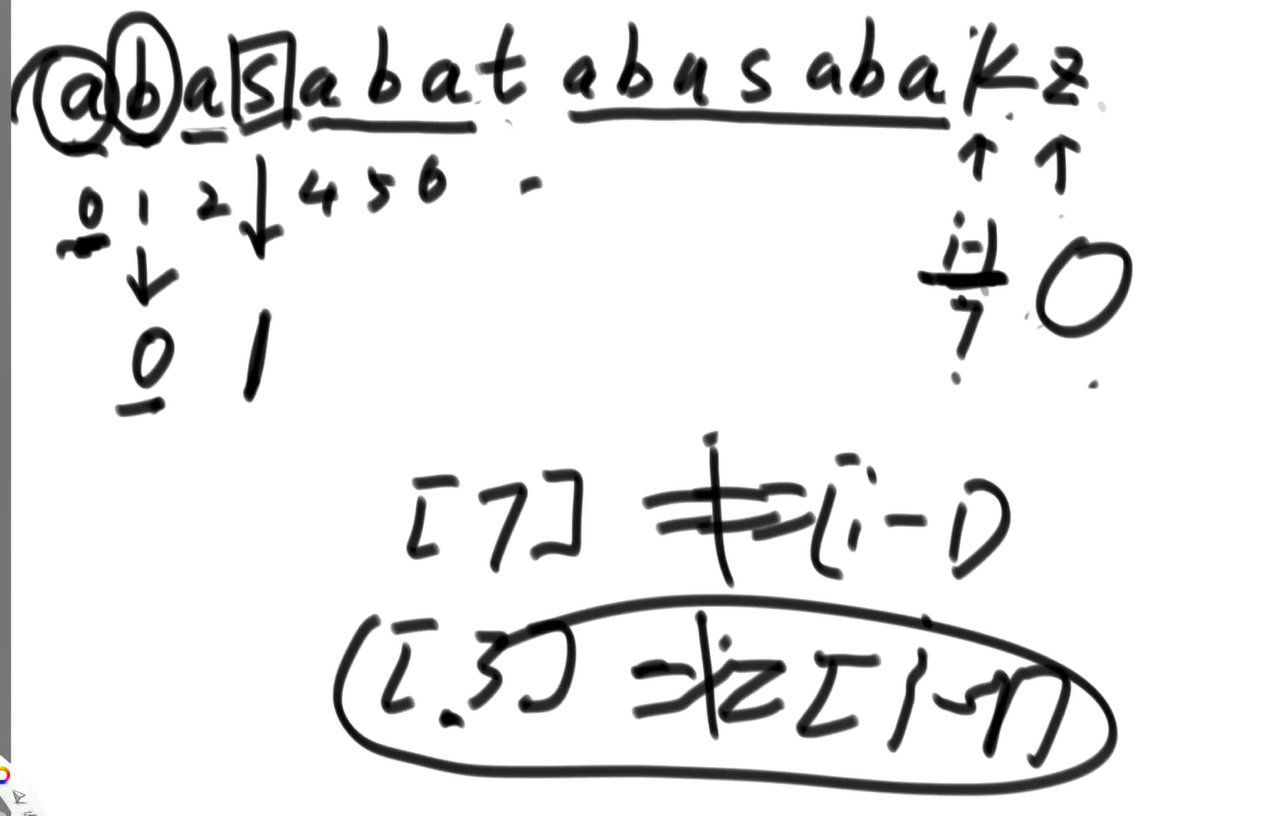 abasabat abasabakz
0 1 2 ↓ 4 5 6
↓ ↑ ↑
0 1
i-1
7
0
[7] ≠= [i-1)
[3] ≠= [i-1]